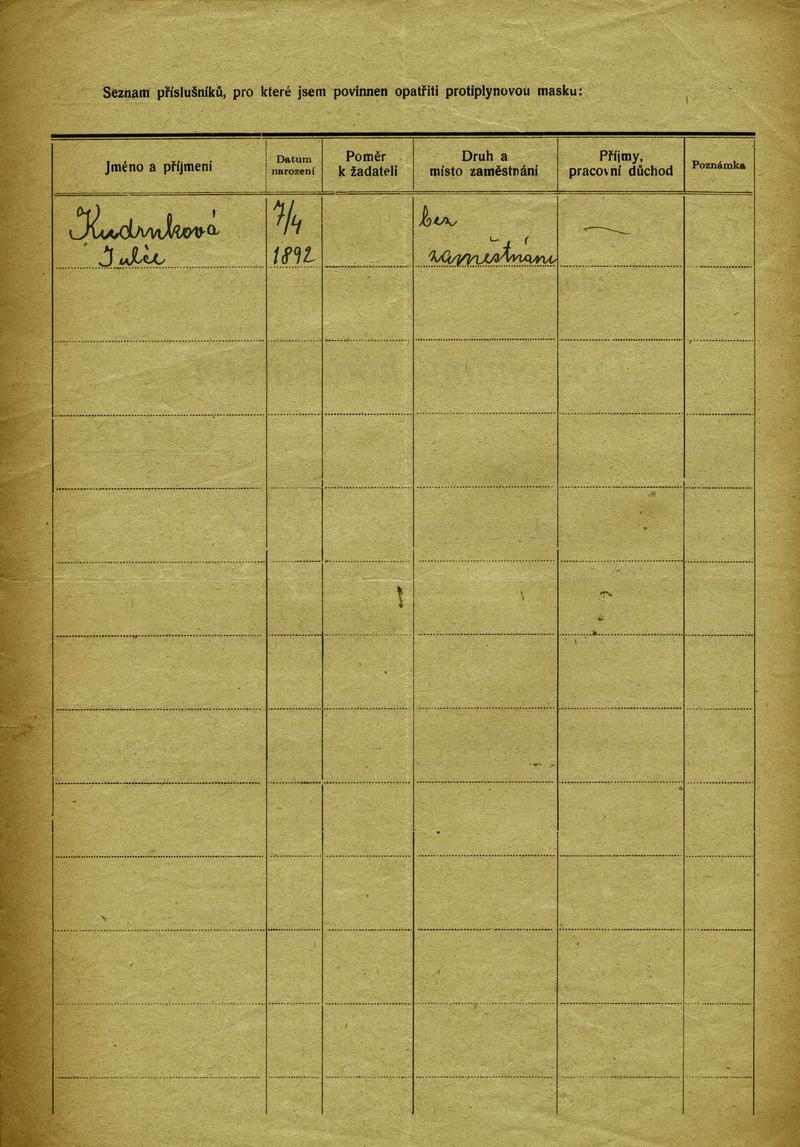 Seznam příslušníků, pro které jsem povinnen opatřiti protiplynovou masku:
Jméno a příjmení
Datum
narození
Poměr
k žadateli
Druh a
místo zaměstnání
Příjmy,
pracovní důchod
Poznámka
Kudrnková
Julie
7/4
1892
bez
zaměstnání
—